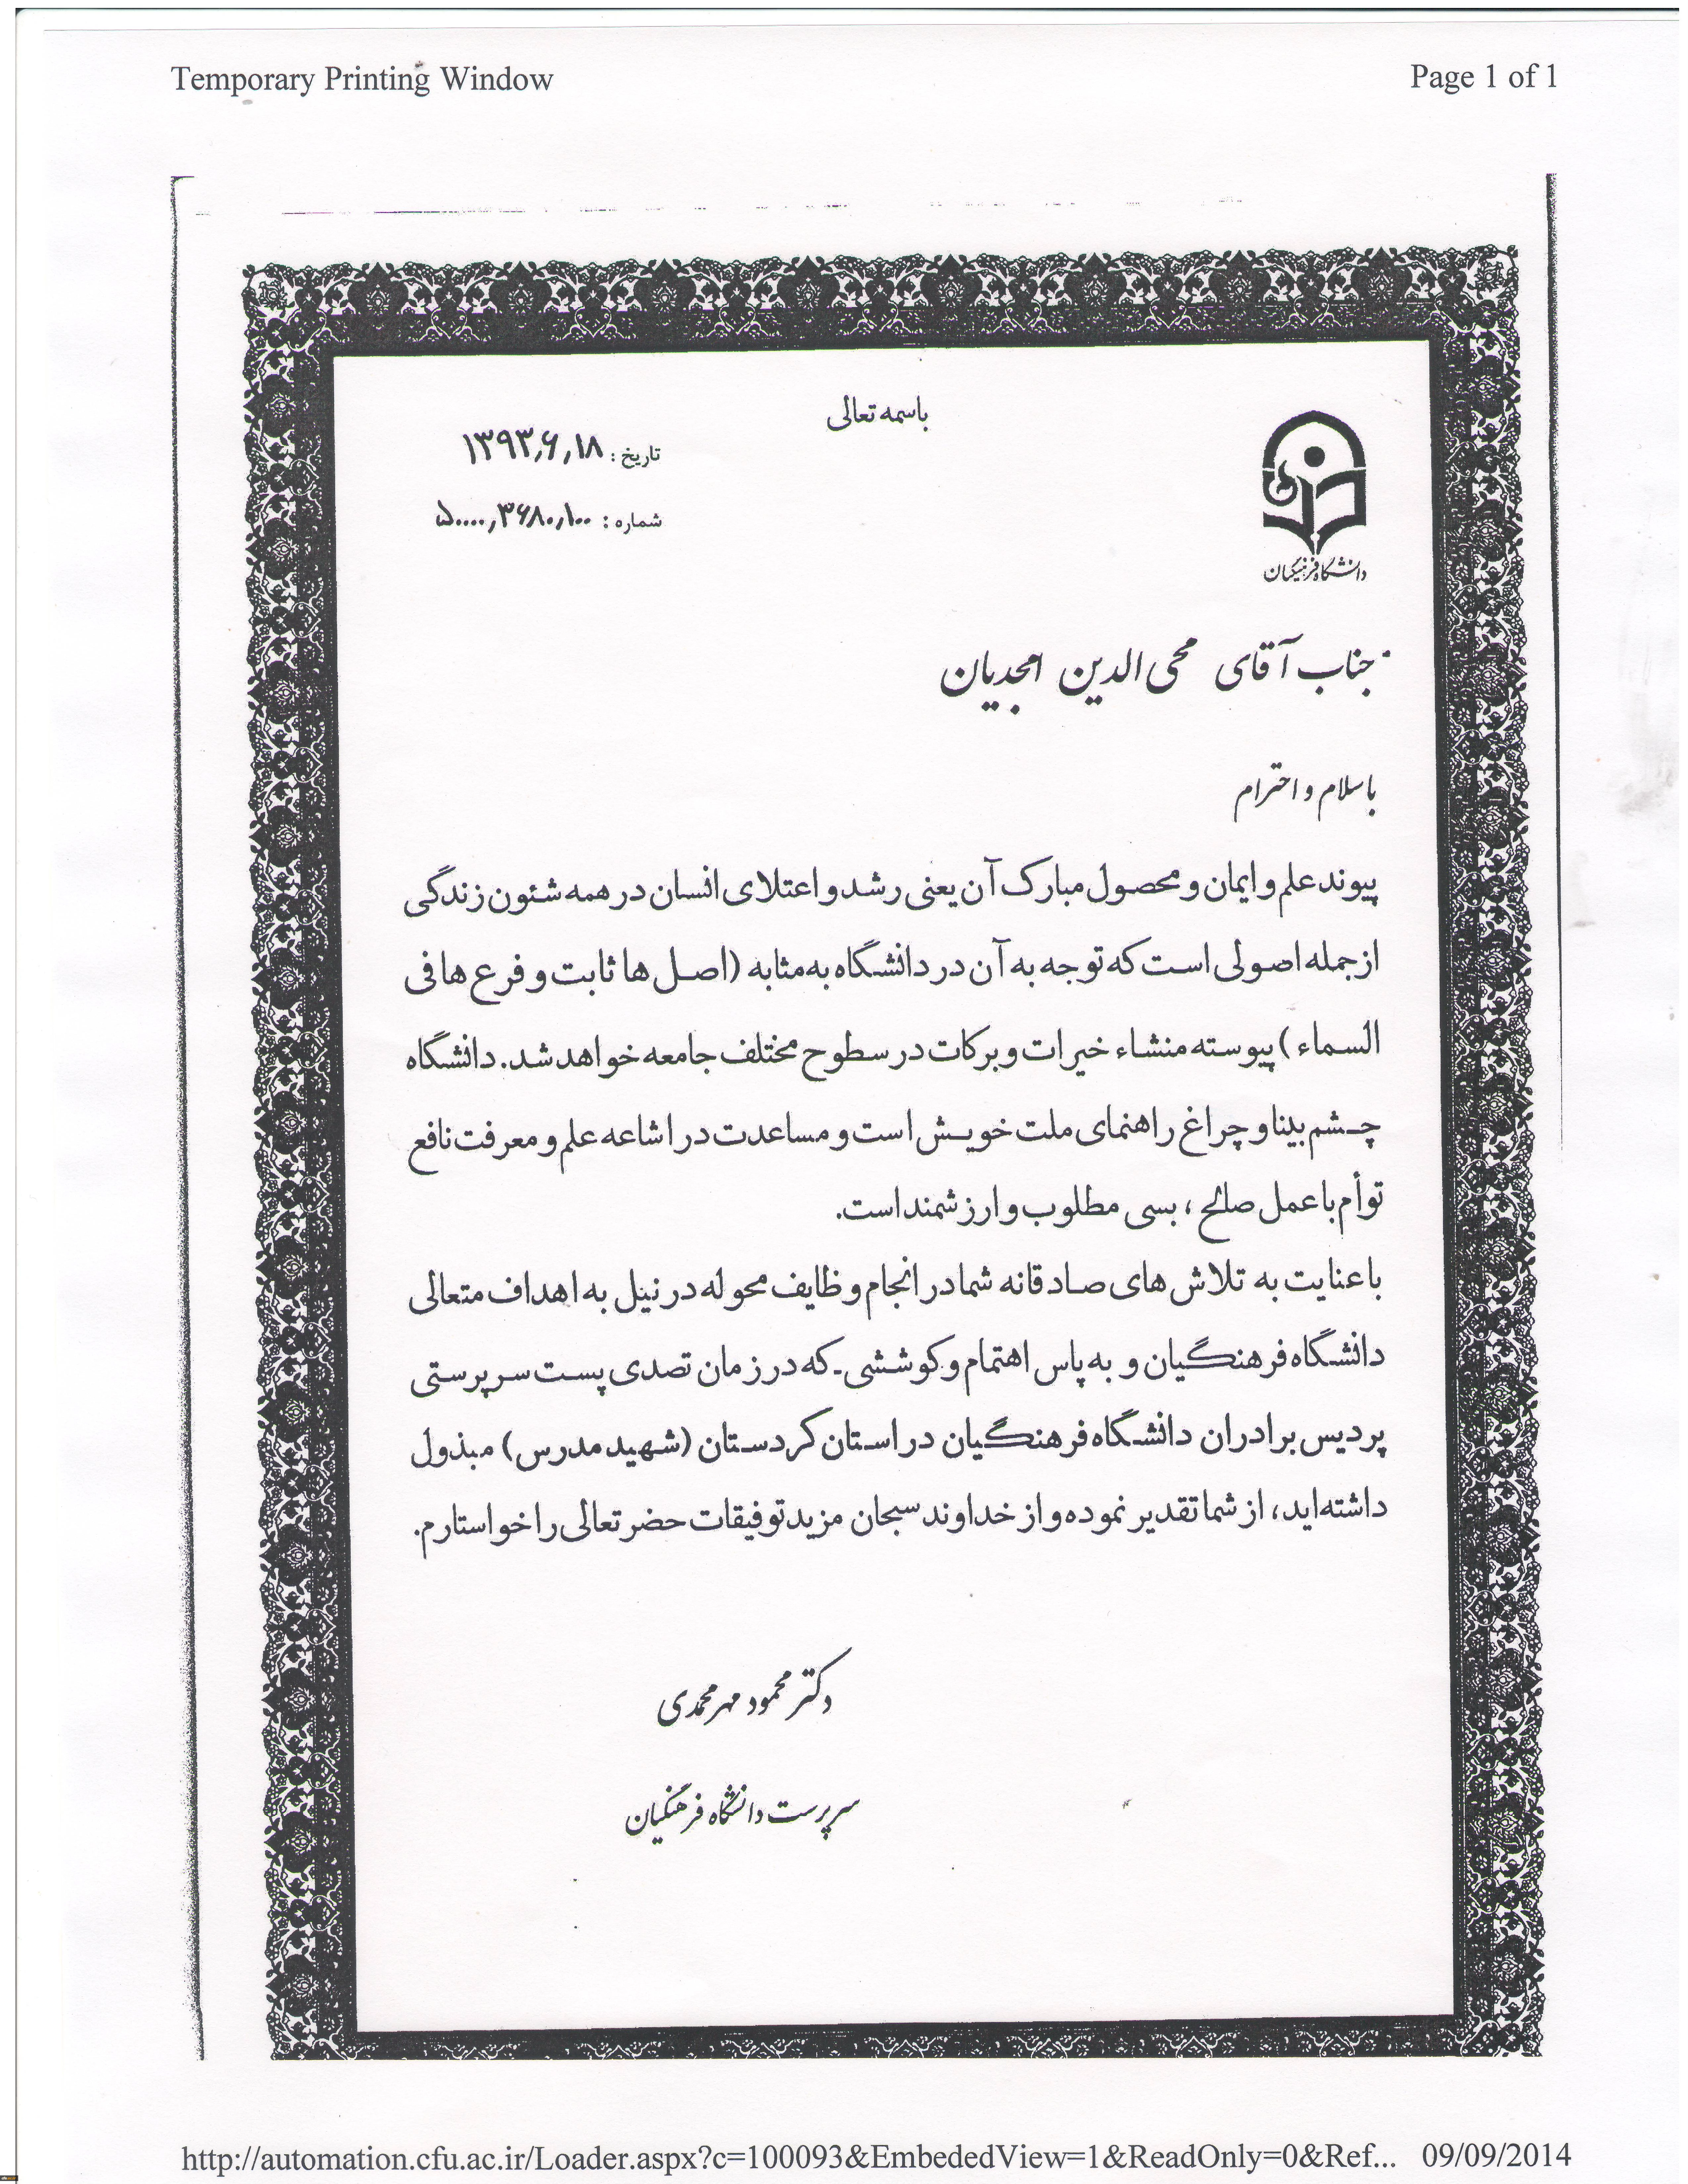 Temporary Printing Window
Page 1 of 1
باسمه تعالی
تاریخ : ۱۳۹۳٫۶٫۱۸
شماره : ۵۰۰۰۰٫۳۶۸۰٫۱۰۰
دانشگاه فرهنگیان
جناب آقای محی الدین امجدیان
با سلام و احترام
پیوند علم و ایمان و محصول مبارک آن یعنی رشد و اعتلای انسان در همه شئون زندگی
از جمله اصولی است که توجه به آن در دانشگاه به مثابه (اصل ها ثابت و فرع ها فی
السماء) پیوسته منشاء خیرات و برکات در سطوح مختلف جامعه خواهد شد. دانشگاه
چشم بینا و چراغ راهنمای ملت خویش است و مساعدت در اشاعه علم و معرفت نافع
توأم با عمل صالح ، بسی مطلوب و ارزشمند است.
با عنایت به تلاش های صادقانه شما در انجام وظایف محوله در نیل به اهداف متعالی
دانشگاه فرهنگیان و به پاس اهتمام و کوششی-که در زمان تصدی پست سرپرستی
پردیس برادران دانشگاه فرهنگیان در استان کردستان (شهید مدرس) مبذول
داشته اید، از شما تقدیر نموده و از خداوند سبحان مزید توفیقات حضرتعالی را خواستارم.
دکتر محمود مهرمحمدی
سرپرست دانشگاه فرهنگیان
http://automation.cfu.ac.ir/Loader.aspx?c=100093&EmbededView=1&ReadOnly=0&Ref... 09/09/2014